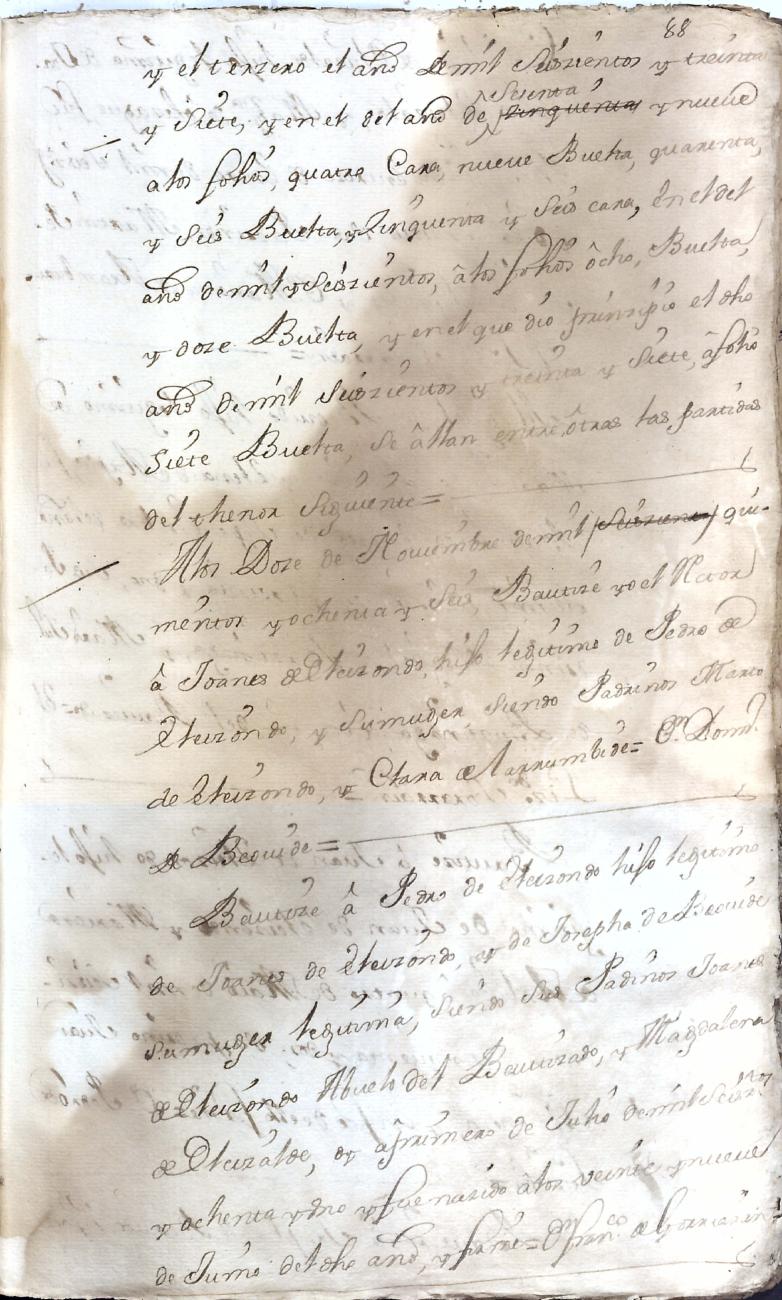 88
y el terzero el año de mil Seiszientos y treinta
y Siete, y en el del año de Sesenta zinquenta y nueve
alos folios, quatro Cara, nueve Buelta, quarenta,
y Seis Buelta, y Zinquenta y Seis cara, en el del
año de mil y Seiszientos, â los folios ôcho, Buelta,
y doze Buelta, y en el que dio prinzipio el dho
año de mil Seiszientos y treinta y Siete, â folio
Siete Buelta, Se âllan entre, ôtras las partidas
del thenor Siguiente=
Alos Doze de Noviembre de mil (Seiszien) qui-
nientos y ochenta y Seis, Bautize yo el Rector
â Joanes de Eleizondo, hijo legitimo de Pedro de
Eleizondo, y Su muger, Siendo Padrinos Martin
de Eleizondo, y Clara de Larrumbide= Dn Domin
de Beovide=
Bautize â Pedro de Eleizondo hijo legitimo
de Joanes de Eleizondo, y de Josepha de Beovide
Su muger legitima, Siendo Sus Padinos Joanes
de Eleizondo Abuelo del Bautizado, y Magdalena
de Eleizalde, oy â primero de Julio de mil Seisztos
y ochenta y Uno y fue nazido âlos veinte y nueve
de Junio del dho año, y firme= Dn Franco de Gorriarin